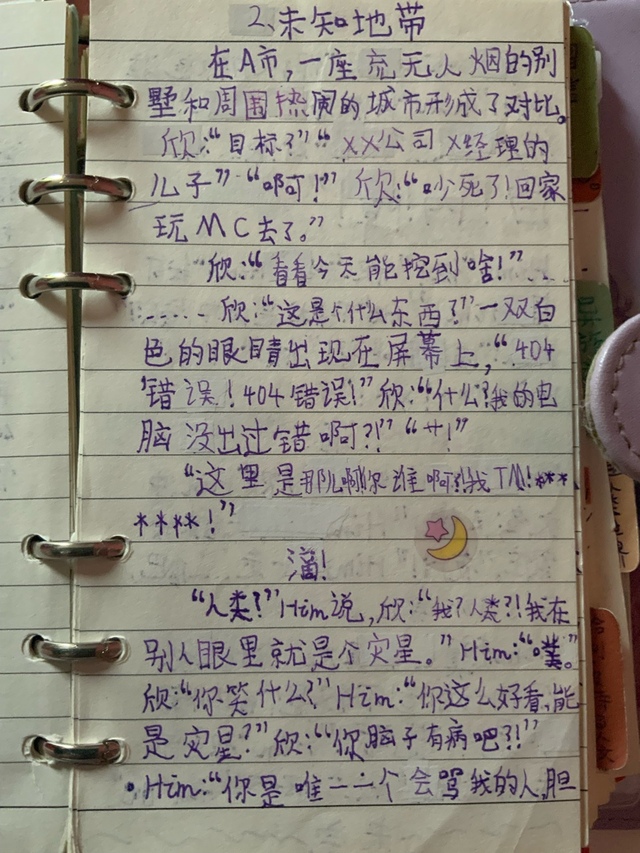 2.未知地带
在A市,一座荒无人烟的别
墅和周围热闹的城市形成了对比。
欣:“目标?”“XX公司X经理的
儿子”“啊!” 欣:“吵死了!回家
玩MC去了。”
欣:“看看今天能挖到啥!”...
..... 欣:“这是个什么东西?”一双白
色的眼睛出现在屏幕上,“404
错误!404错误!”欣:“什么?我的电
脑没出过错啊?!”“艹!”
“这里是那儿啊!你谁啊?!我TM!***
****!”
滴!
“人类?”Him说,欣:“我?人类?!我在
别人眼里就是个灾星。”Him:“噗。”
欣:“你笑什么?”Him:“你这么好看,能
是灾星?”欣:“你脑子有病吧?!”
·Him:“你是唯一一个会骂我的人,胆